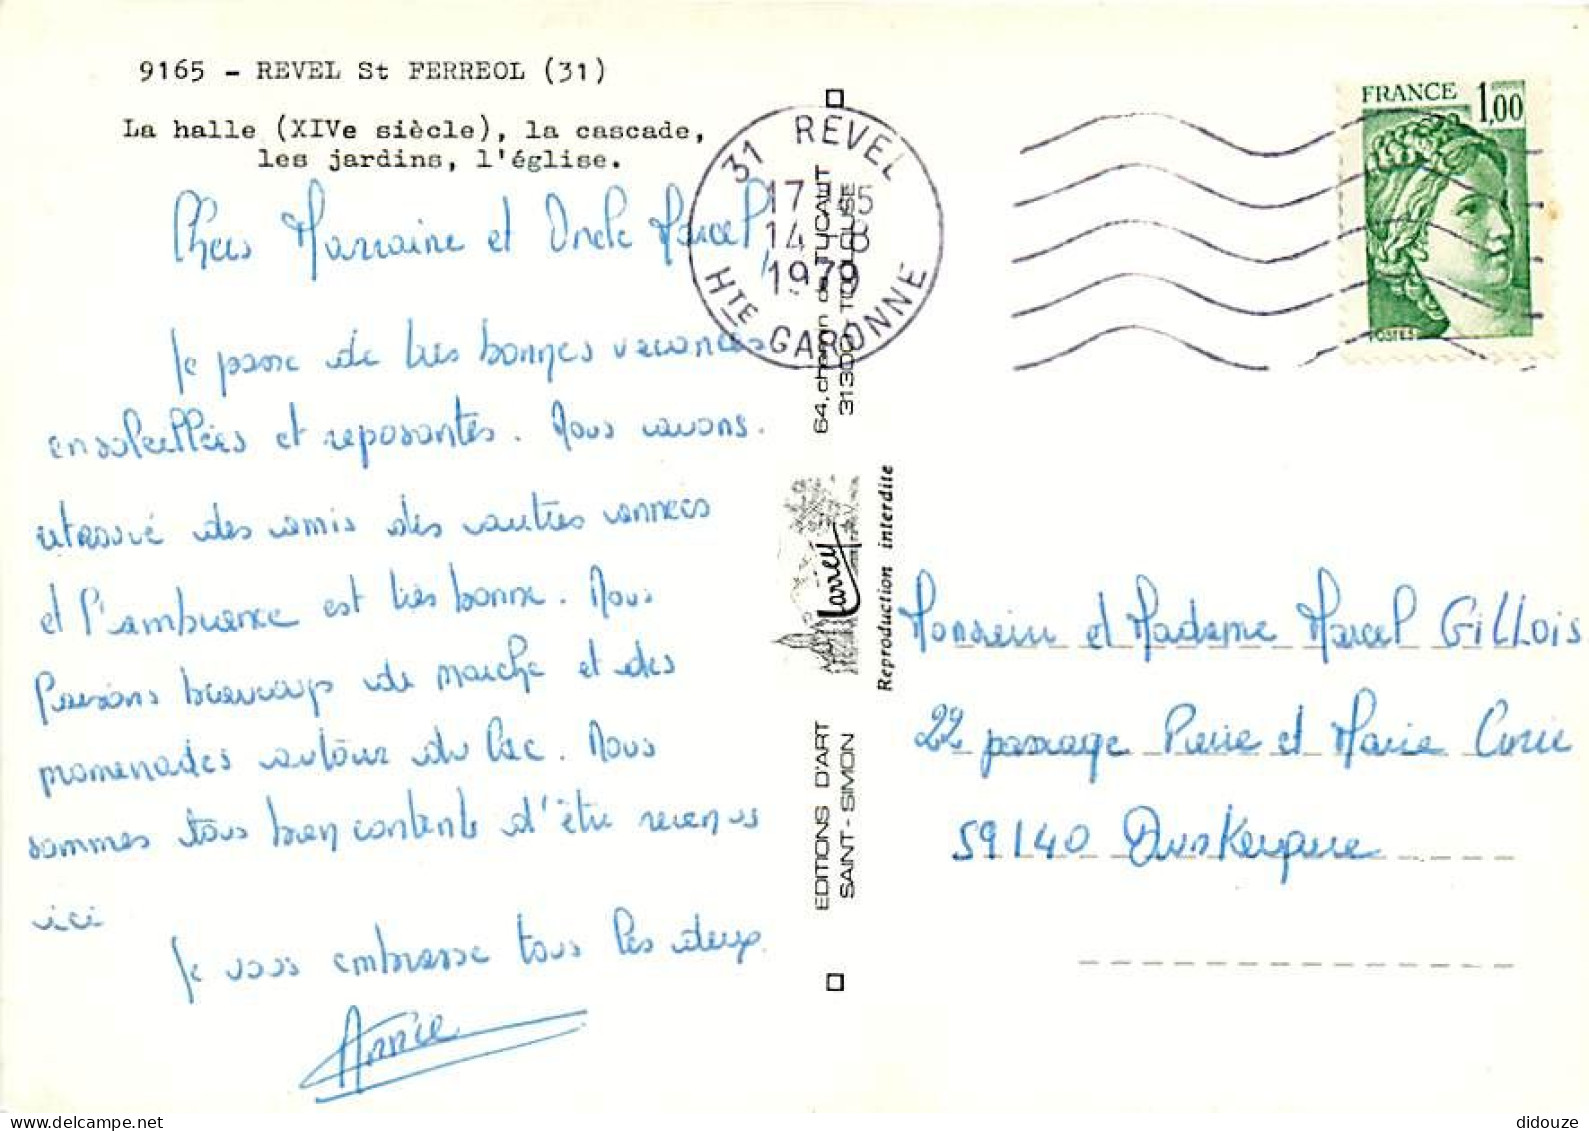 9165 - REVEL St FERREOL (31)
La halle (XIVe siècle), la cascade,
les jardins, l'église.
Chers Marraine et Oncle Marcel,
Je passe de très bonnes vacances
ensoleillées et reposantes. Nous avons
retrouvé des amis des autres années
et l'ambiance est très bonne. Nous
faisons beaucoup de marche et des
promenades autour du lac. Nous
sommes tous bien contents d'être revenus
ici
Je vous embrasse tous les deux.
Annie
31 REVEL
14-8
1979
HTE GARONNE
64, chemin de TUCAUT
31300 TOULOUSE
larrey
Reproduction interdite
EDITIONS D'ART
SAINT-SIMON
FRANCE 1,00
POSTES
Monsieur et Madame Marcel GILLOIS
22 passage Pierre et Marie Curie
59140 Dunkerque
didouze